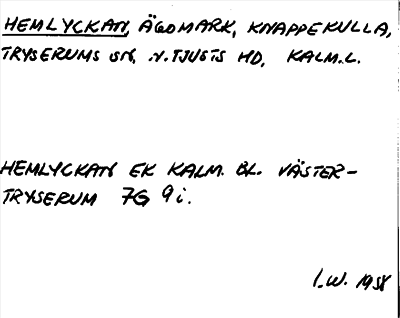 HEMLYCKAN, ÄGOMARK, KNAPPEKULLA,
TRYSERUMS SN, N. TJUSTS HD, KALM.L.
HEMLYCKAN EK KALM. BL. VÄSTER-
TRYSERUM 7G 9i.
I.W. 1958